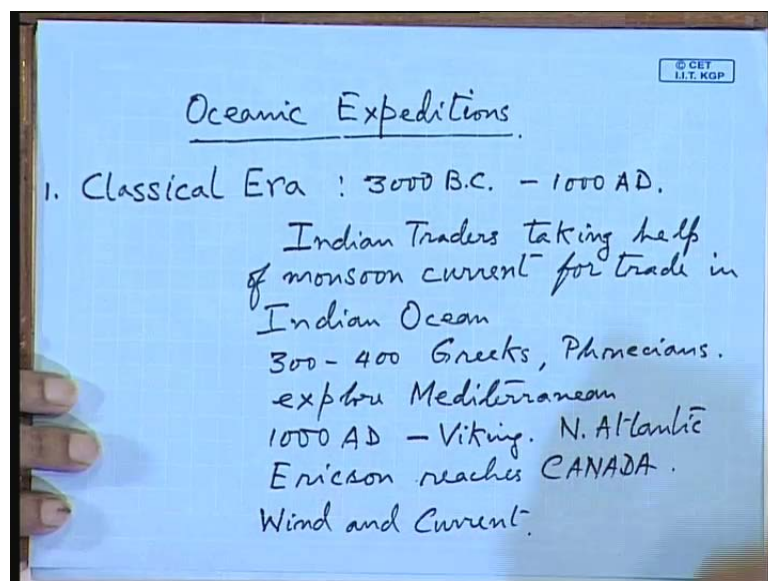 © CET
I.I.T. KGP
Oceanic Expeditions.
1. Classical Era : 3000 B.C. – 1000 AD.
Indian Traders taking help
of monsoon current for trade in
Indian Ocean
300 – 400 Greeks, Phonecians.
explore Mediterranean
1000 AD – Viking. N. Atlantic
Ericson reaches CANADA.
Wind and Current.